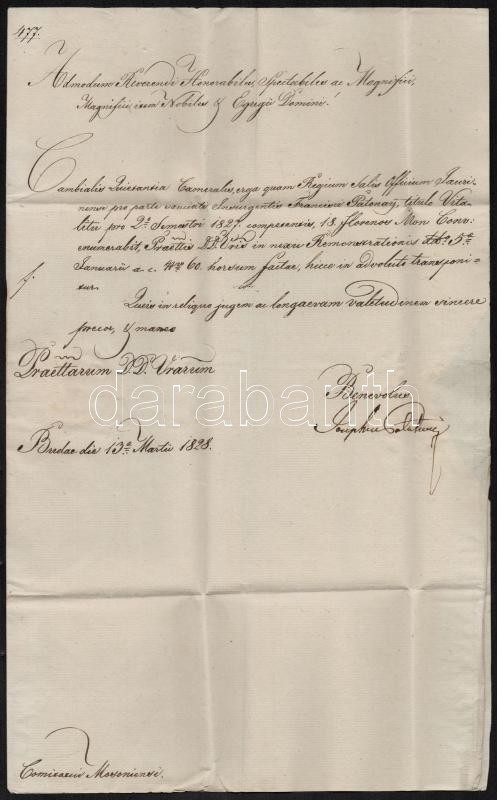 477.
Admodum Reverendi Honorabiles, Spectabiles ac Magnifici,
Magnifici, item Nobiles & Egregii Domini!
Cambialis Quietantia Cameralis, erga quam Regium Salis Officium Jauri-
nense pro parte sauciati Insurgentis Francisci Polonay, titulo Vita-
litii pro 2o Semestri 1827. competentes, 18 florenos Mon Conv:
enumerabit, Praettis DD Vris in nexu Remonstrationis ddo 5ae
Januarii a. c. Nro 60. horsum factae, hicce in advoluto transponi-
tur.
Quis in reliquo jugem ac longaevam valetudinem sincere
precor, & maneo
Praettarum D.D. Vrarum
Benevolus
Josephus Palatinus
darabanth
Budae die 13a Martii 1828.
Comitatui Mosoniensi.